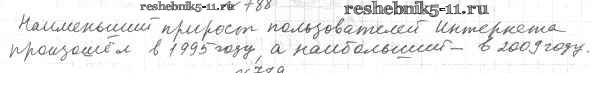 reshebnik5-11.ru 788 reshebnik5-11.ru
Наименьший прирост пользователей Интернета
произошёл в 1995 году, а наибольший – в 2009 году.